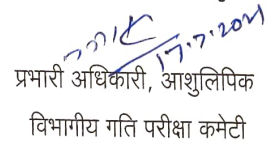 17.7.2021
प्रभारी अधिकारी, आशुलिपिक
विभागीय गति परीक्षा कमेटी